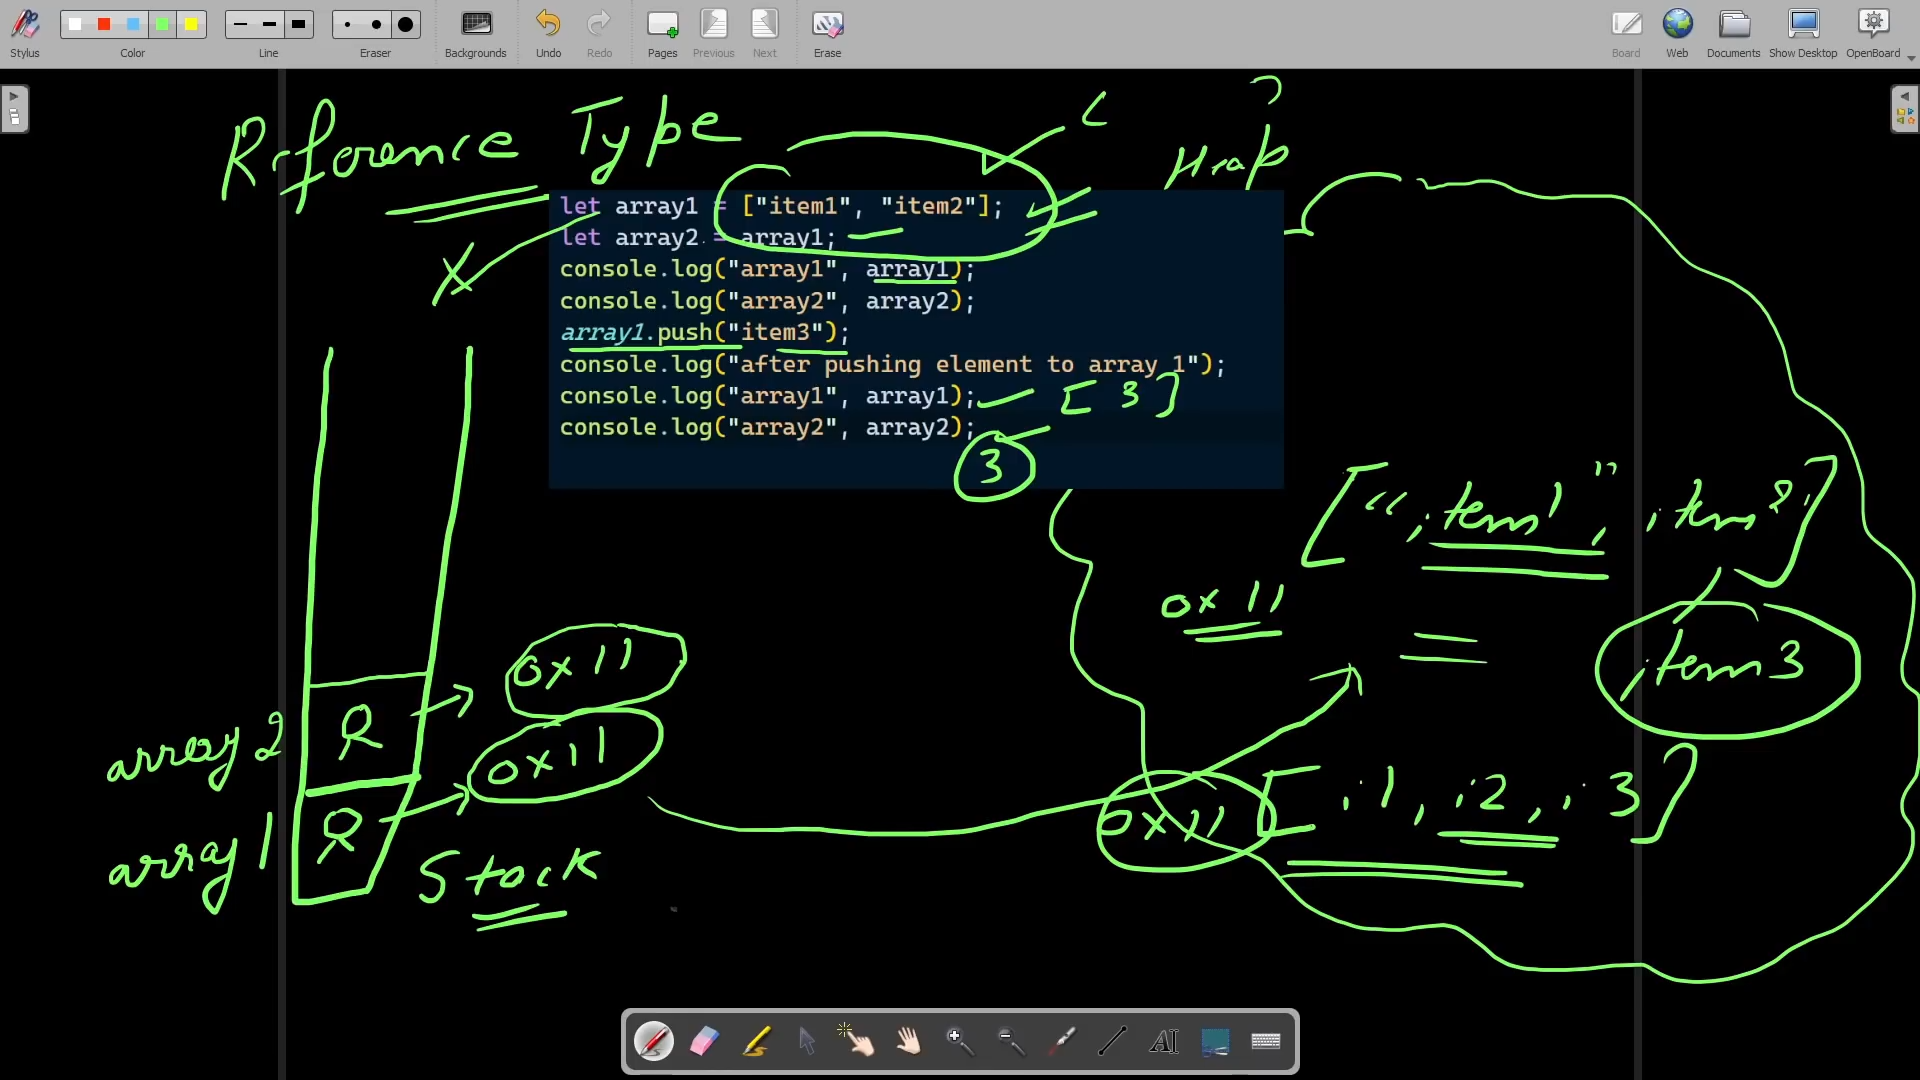 Stylus Color Line Eraser Backgrounds Undo Redo Pages Previous Next Erase Board Web Documents Show Desktop OpenBoard
Reference Type
Heap
let array1 = ["item1", "item2"];
let array2 = array1;
console.log("array1", array1);
console.log("array2", array2);
array1.push("item3");
console.log("after pushing element to array 1");
console.log("array1", array1);
[ 3 ]
console.log("array2", array2);
3
["item1", item2]
0x11
item3
0x11
array 2 R
0x11
0x11 [ i1, i2, i3 ]
array 1 R
Stack
AI